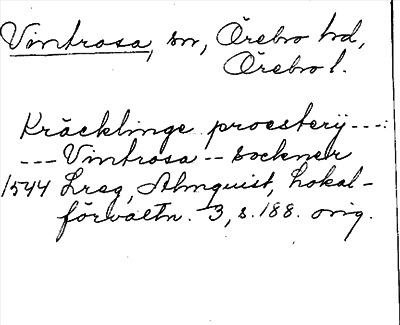 Vintrosa, sn, Örebro hd,
Örebro l.
Kräcklinge proesterij ---:
--- Vintrosa -- sockner
1544 Lreg, Almquist, Lokal-
förvaltn. 3, s. 188. orig.